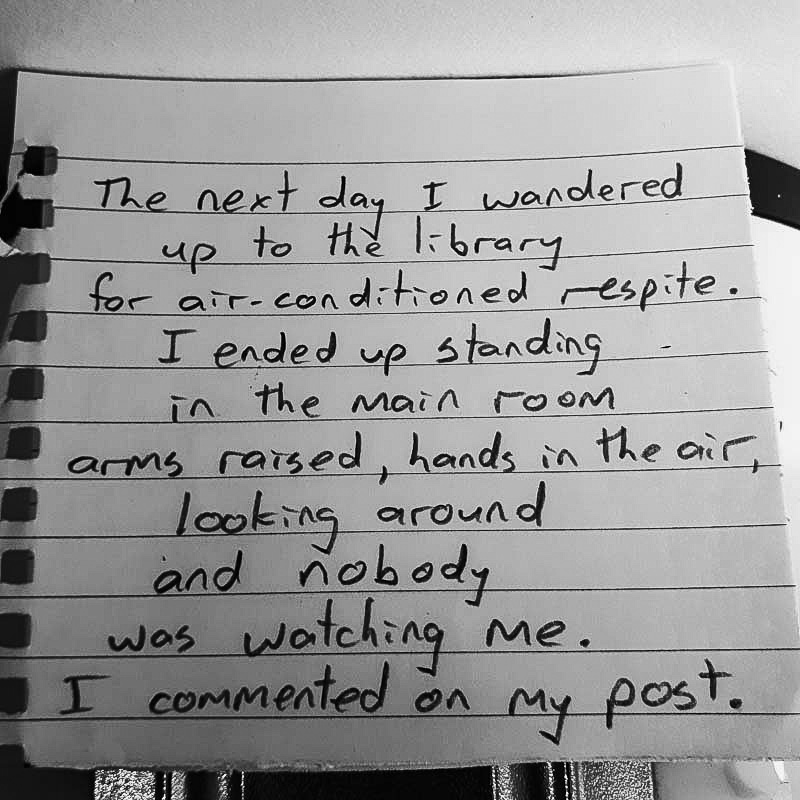 The next day I wandered
up to the library
for air-conditioned respite.
I ended up standing
in the main room
arms raised, hands in the air,
looking around
and nobody
was watching me.
I commented on my post.